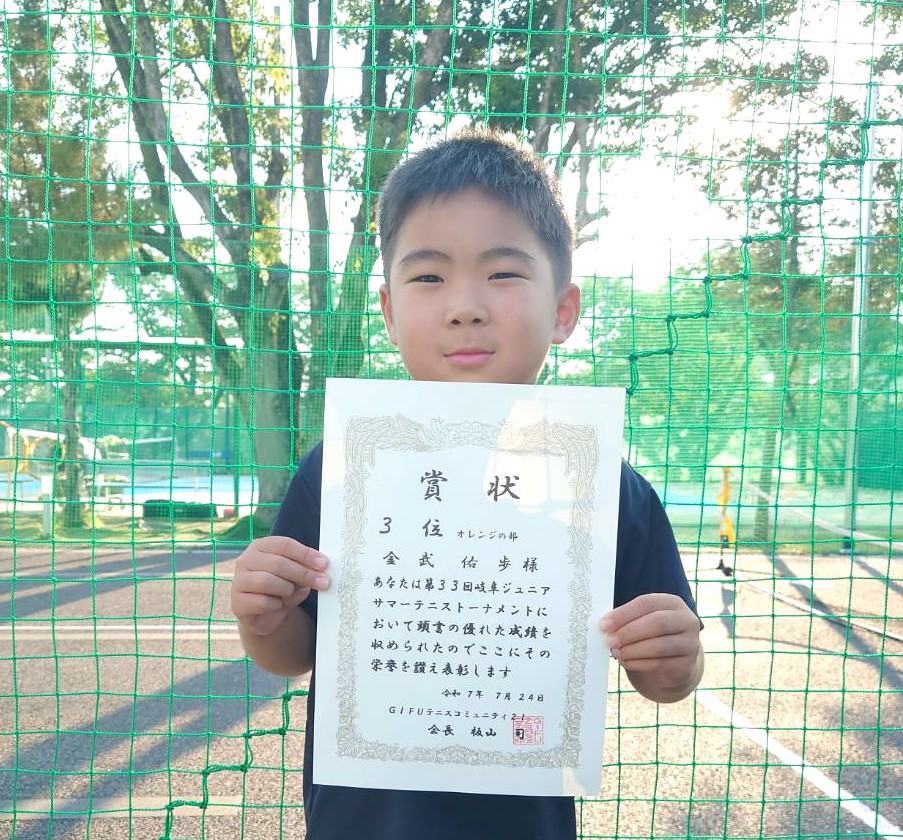 賞 状
3 位 オレンジの部
金 武 佑 歩 様
あなたは第33回岐阜ジュニア
サマーテニストーナメントに
おいて頭書の優れた成績を
収められたのでここにその
栄誉を讃え表彰します
令和 7年 7月 24日
GIFUテニスコミュニティ21
会長 板山 司